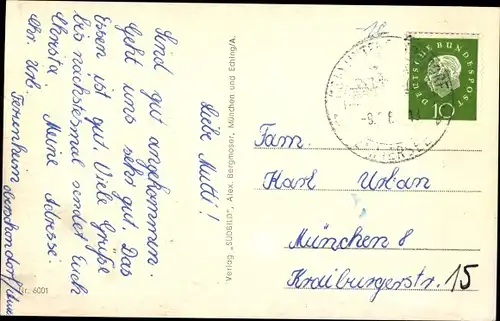 Liebe Mutti!
Sind gut angekommen.
Geht uns sehr gut. Das
Essen ist gut. Viele Grüße
bis nächstesmal sendet Euch
Christa Meine Adresse
Chr. Urb.
Ferienheim Oberschondorf/
Nr. 6001
Verlag „SÜDBILD“, Alex. Bergmoser, München und Eching/A.
DEUTSCHE BUNDESPOST
10
AMMERSEE
Fam.
Karl Urban
München 8
Kraiburgerstr. 15